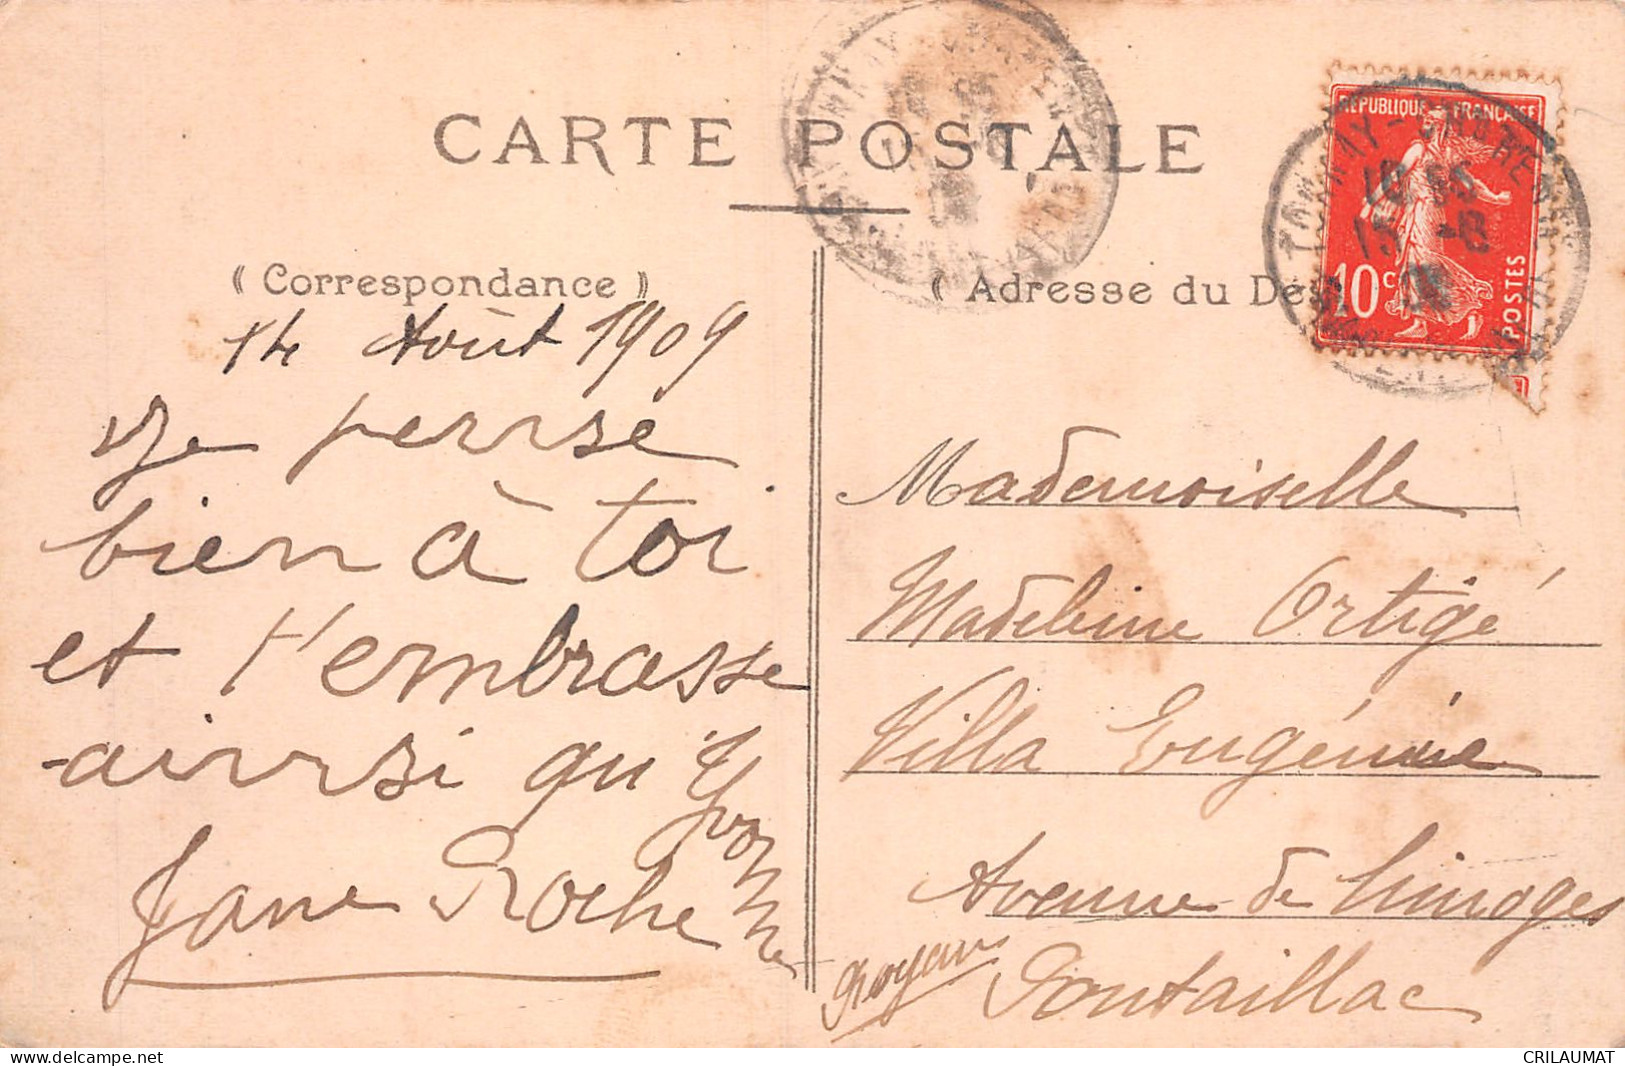 CARTE POSTALE
( Correspondance )
14 Août 1909
Je pense
bien à toi
et t'embrasse
ainsi qu'Yvonne
Jane Roche
( Adresse du Des
RÉPUBLIQUE FRANÇAISE
10c
POSTES
TONNAY-CHARENTE
10 55
15 -8
09
Mademoiselle
Madeleine Ortigé
Villa Eugénie
Avenue de Limoges
Pontaillac
Royan
CRILAUMAT